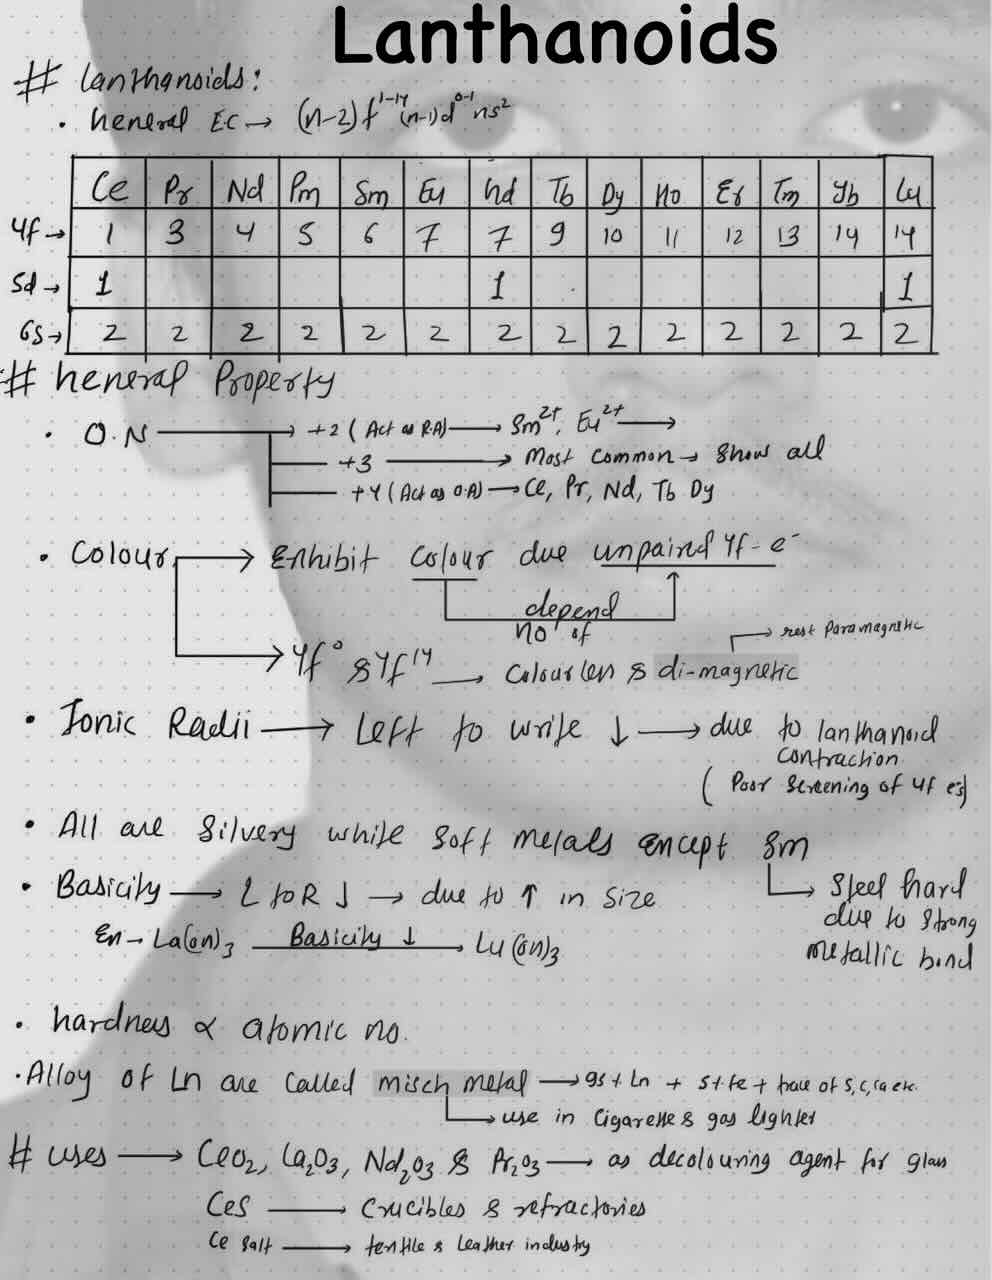 Lanthanoids
# Lanthanoids:
· General EC → (n-2)f¹⁻¹⁴ (n-1)d⁰⁻¹ ns²
Ce Pr Nd Pm Sm Eu Gd Tb Dy Ho Er Tm Yb Lu
4f → 1 3 4 5 6 7 7 9 10 11 12 13 14 14
5d → 1 1 1
6s → 2 2 2 2 2 2 2 2 2 2 2 2 2 2
# General Property
· O.N → +2 (Act as R.A) → Sm²⁺, Eu²⁺ →
+3 → Most common → Show all
+4 (Act as O.A) → Ce, Pr, Nd, Tb Dy
· Colour → Exhibit colour due unpaired 4f-e⁻
depend
no of
→ rest Paramagnetic
4f⁰ & 4f¹⁴ → Colourless & di-magnetic
· Ionic Radii → Left to write ↓ → due to lanthanoid
contraction
( Poor Screening of 4f e⁻s)
· All are Silvery white soft metals except Sm
· Basicity → L to R ↓ → due to ↑ in size
→ Steel hard
due to strong
metallic bond
Ex → La(OH)₃ Basicity ↓ → Lu(OH)₃
· hardness ∝ atomic no.
· Alloy of Ln are called misch metal → 95% Ln + 5% Fe + trace of S, C, Ca etc.
→ use in Cigarette & gas lighter
# uses → CeO₂, La₂O₃, Nd₂O₃ & Pr₂O₃ → as decolouring agent for glass
CeS → Crucibles & refractories
Ce salt → textile & Leather industry